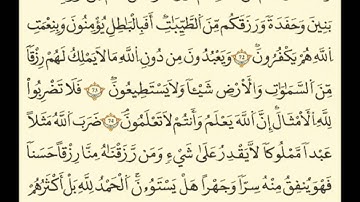 بَنِينَ وَحَفَدَةً وَرَزَقَكُم مِّنَ ٱلطَّيِّبَٰتِۚ أَفَبِٱلْبَٰطِلِ يُؤْمِنُونَ وَبِنِعْمَتِ
ٱللَّهِ هُمْ يَكْفُرُونَ ٧٢ وَيَعْبُدُونَ مِن دُونِ ٱللَّهِ مَا لَا يَمْلِكُ لَهُمْ رِزْقًا
مِّنَ ٱلسَّمَٰوَٰتِ وَٱلْأَرْضِ شَيْـًٔا وَلَا يَسْتَطِيعُونَ ٧٣ فَلَا تَضْرِبُوا۟
لِلَّهِ ٱلْأَمْثَالَۚ إِنَّ ٱللَّهَ يَعْلَمُ وَأَنتُمْ لَا تَعْلَمُونَ ٧٤ ضَرَبَ ٱللَّهُ مَثَلًا
عَبْدًا مَّمْلُوكًا لَّا يَقْدِرُ عَلَىٰ شَىْءٍ وَمَن رَّزَقْنَٰهُ مِنَّا رِزْقًا حَسَنًا
فَهُوَ يُنفِقُ مِنْهُ سِرًّا وَجَهْرًا هَلْ يَسْتَوُۥنَۚ ٱلْحَمْدُ لِلَّهِۚ بَلْ أَكْثَرُهُمْ